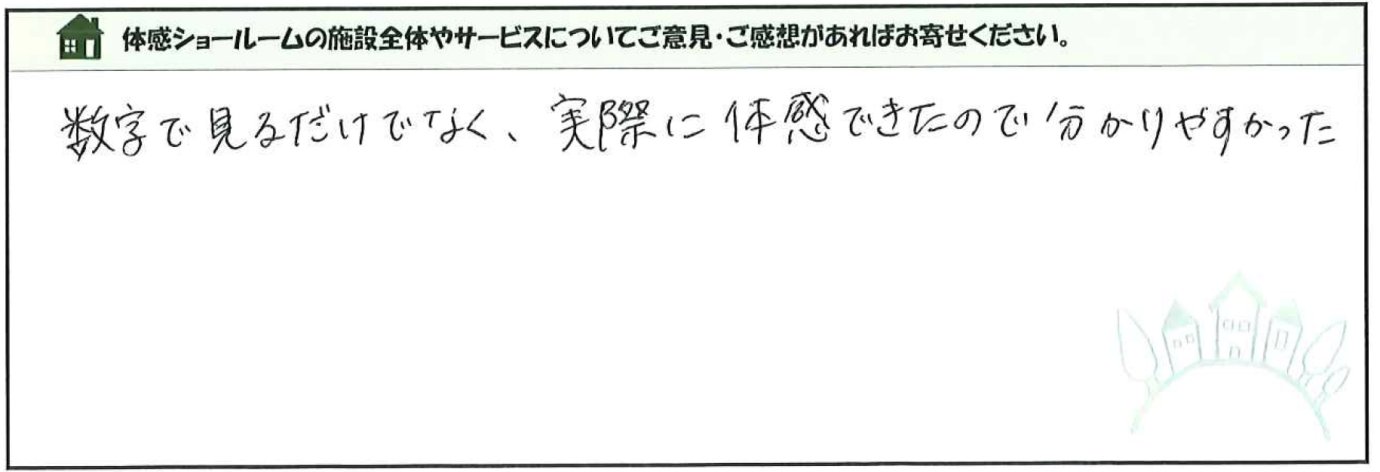 体感ショールームの施設全体やサービスについてご意見・ご感想があればお寄せください。
数字で見るだけでなく、実際に体感できたので分かりやすかった